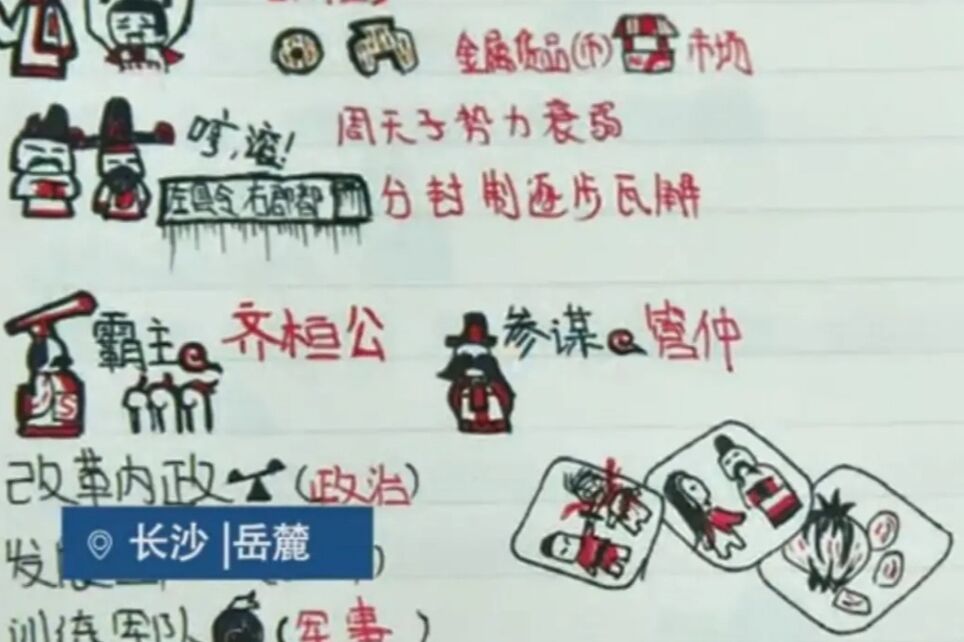 金属货品(币) 市场
哼,滚! 周天子势力衰弱
左县令 右郡都 分封制逐步瓦解
霸主 齐桓公 参谋 管仲
改革内政 (政治)
长沙|岳麓
发展
训练军队 (军事)